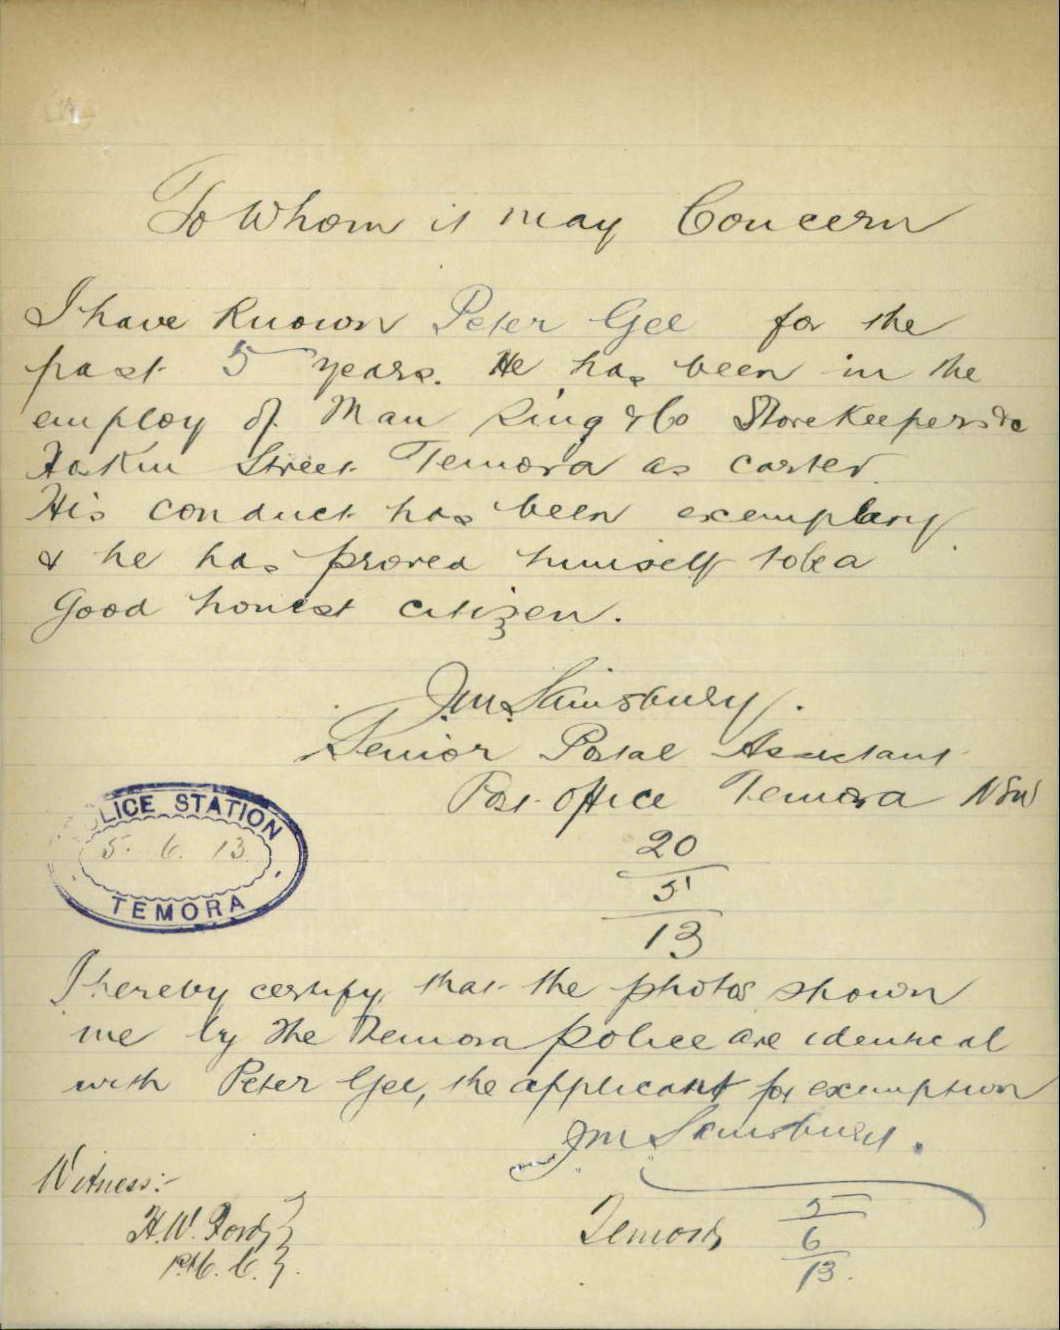 To Whom it may Concern
I have Known Peter Gee for the
past 5 years. He has been in the
employ of Man Sing & Co StoreKeepers &c
Hoskin Street Temora as carter
His conduct has been exemplary
& he has proved himself to be a
Good honest citizen.
J.M. Sainsbury.
Senior Postal Assistant
Post Office Temora NSW
20
5
13
POLICE STATION
5. 6. 13
TEMORA
I hereby certify that the photos shown
me by the Temora police are identical
with Peter Gee, the applicant for exemption
J.M. Sainsbury.
Witness:-
H.W. Ford
P.M.C.
Temora
5
6
13.